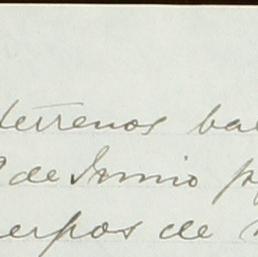 terrenos bal
de Junio p
uerpos de